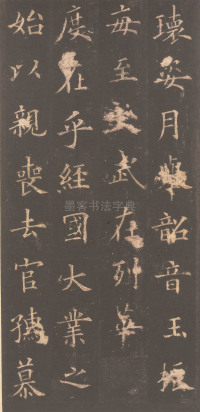 瓌姿月韶音玉
每至武在列
度在乎經國大業之
始以親喪去官孺慕
墨客书法字典